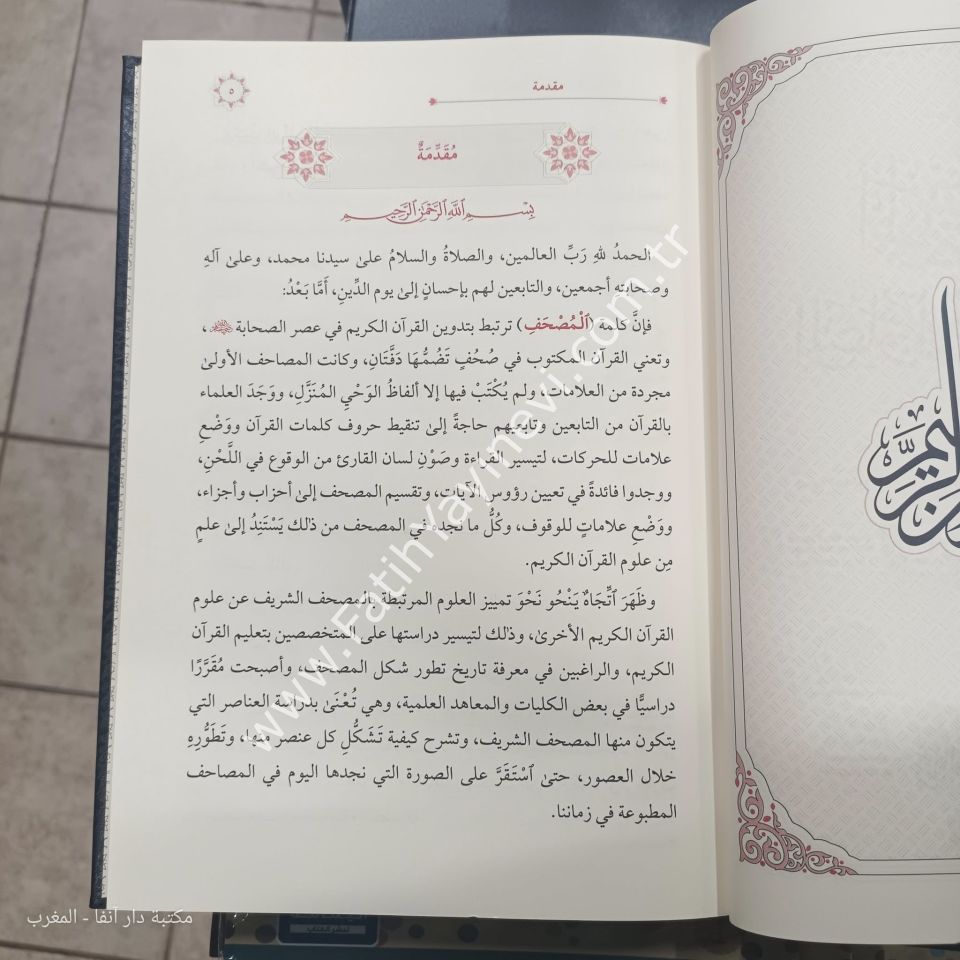 مقدمة
٥
مُقَدِّمَةٌ
بِسْمِ ٱللَّهِ ٱلرَّحْمَٰنِ ٱلرَّحِيمِ
الحمدُ للهِ رَبِّ العالمين، والصلاةُ والسلامُ علىٰ سيدنا محمد، وعلىٰ آلهِ
وصحابتهِ أجمعين، والتابعين لهم بإحسانٍ إلىٰ يوم الدِّينِ، أَمَّا بَعْدُ:
فإنَّ كلمة (ٱلْمُصْحَفِ) ترتبط بتدوين القرآن الكريم في عصر الصحابة ﷺ،
وتعني القرآن المكتوب في صُحُفٍ تَضُمُّهَا دَفَّتَانِ، وكانت المصاحف الأولىٰ
مجردة من العلامات، ولم يُكْتَبْ فيها إلا ألفاظُ الوَحْيِ المُنَزَّلِ، ووَجَدَ العلماء
بالقرآن من التابعين وتابعيهم حاجةً إلىٰ تنقيط حروف كلمات القرآن ووَضْعِ
علامات للحركات، لتيسير القراءة وصَوْنِ لسان القارئ من الوقوع في اللَّحْنِ،
ووجدوا فائدةً في تعيين رؤوس الآيات، وتقسيم المصحف إلىٰ أحزاب وأجزاء،
ووَضْعِ علاماتٍ للوقوف، وكُلُّ ما نجده في المصحف من ذلك يَسْتَنِدُ إلىٰ علمٍ
مِن علوم القرآن الكريم.
وظَهَرَ ٱتِّجَاهٌ يَنْحُو نَحْوَ تمييز العلوم المرتبطة بالمصحف الشريف عن علوم
القرآن الكريم الأخرىٰ، وذلك لتيسير دراستها على المتخصصين بتعليم القرآن
الكريم، والراغبين في معرفة تاريخ تطور شكل المصحف، وأصبحت مُقَرَّرًا
دراسيًّا في بعض الكليات والمعاهد العلمية، وهي تُعْنَىٰ بدراسة العناصر التي
يتكون منها المصحف الشريف، وتشرح كيفية تَشَكُّلِ كل عنصر منها، وتَطَوُّرِهِ
خلال العصور، حتىٰ ٱسْتَقَرَّ على الصورة التي نجدها اليوم في المصاحف
المطبوعة في زماننا.
www.FatihYayinevi.com.tr
مكتبة دار آنفا - المغرب